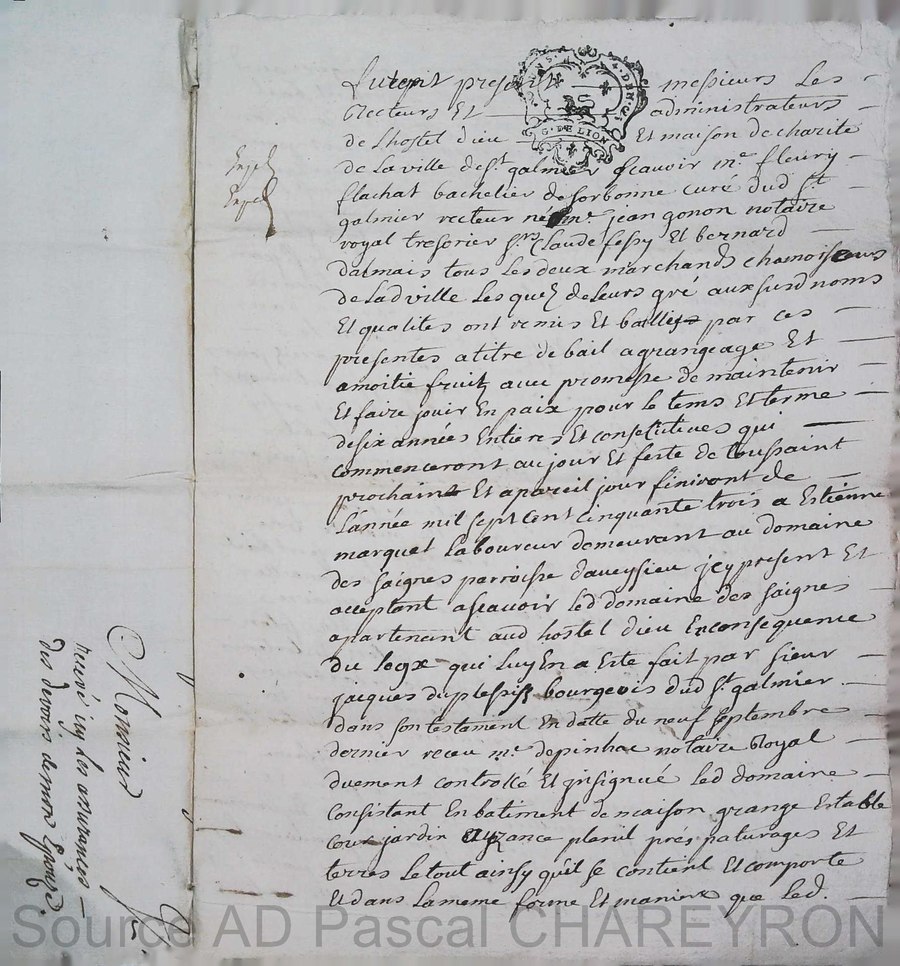 Furent presents messieurs Les
Recteurs Et administrateurs
de Lhostel dieu Et maison de charité
de La ville de st. galmier scavoir me. fleury
flachat bachelier de sorbonne curé dud st.
galmier recteur né me. jean gonon notaire
royal tresorier srs. Claude fessy Et bernard
dalmais tous Les deux marchands chamoiseurs
de Lad ville Lesquels de Leurs gré aux susd noms
Et qualites ont remis Et baillés par ces
presentes a titre de bail a grangeage Et
a moitie fruitz avec promesse de maintenir
Et faire jouir En paix pour Le tems Et terme
de six années Entieres Et consecutives qui
commenceront au jour Et feste de toussaint
prochaint Et a pareil jour finiront de
L'année mil sept cent cinquante trois a Estienne
marquet Laboureur demeurant au domaine
des saignes parroisse d'aveysieu jcy present Et
acceptant ascavoir Led domaine des saignes
apartenent aud hostel dieu En consequence
du Legs qui Luy En a Esté fait par sieur
jacques duplessis bourgeois dud st. galmier
dans son testament En datte du neuf septembre
dernier receu me. depinhac notaire Royal
duement controllé Et jnsignué Led domaine
Consistant En batiment de maison grange Estable
cour jardin prés paturages Et
terres Le tout ainsy qu'il se contient Et comporte
Et dans La meme forme Et maniere que Led.
G. DE LION
Exped
Exped
Monsieur
des devoirs de mon Epous
Source AD Pascal CHAREYRON